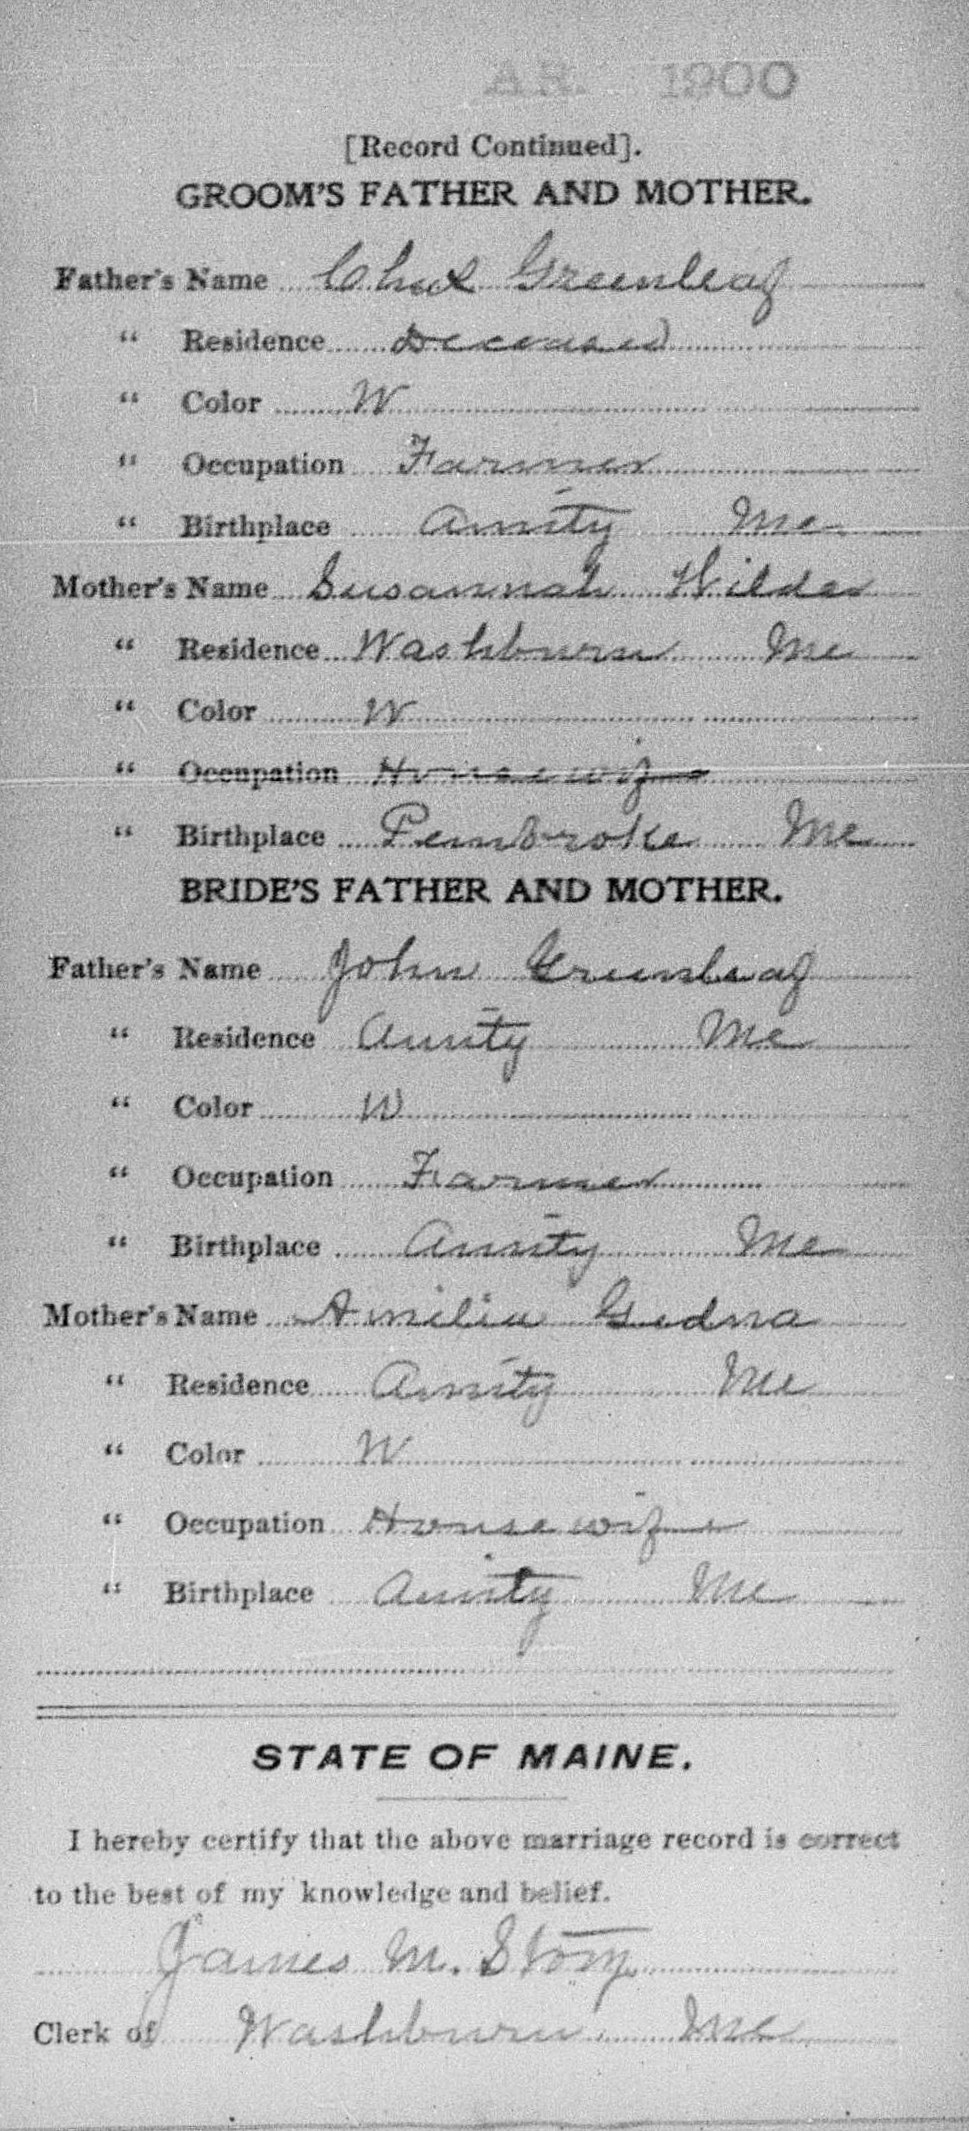 AR. 1900
[Record Continued].
GROOM'S FATHER AND MOTHER.
Father's Name Greenleaf
" Residence Deceased
" Color W
" Occupation Farmer
" Birthplace Amity Me
Mother's Name Susannah Wilder
" Residence Washburn Me
" Color W
" Occupation Housewife
" Birthplace Pembroke Me
BRIDE'S FATHER AND MOTHER.
Father's Name John Greenleaf
" Residence Amity Me
" Color W
" Occupation Farmer
" Birthplace Amity Me
Mother's Name Amilia
" Residence Amity Me
" Color W
" Occupation Housewife
" Birthplace Amity Me
STATE OF MAINE.
I hereby certify that the above marriage record is correct
to the best of my knowledge and belief.
James M. Story
Clerk of Washburn Me